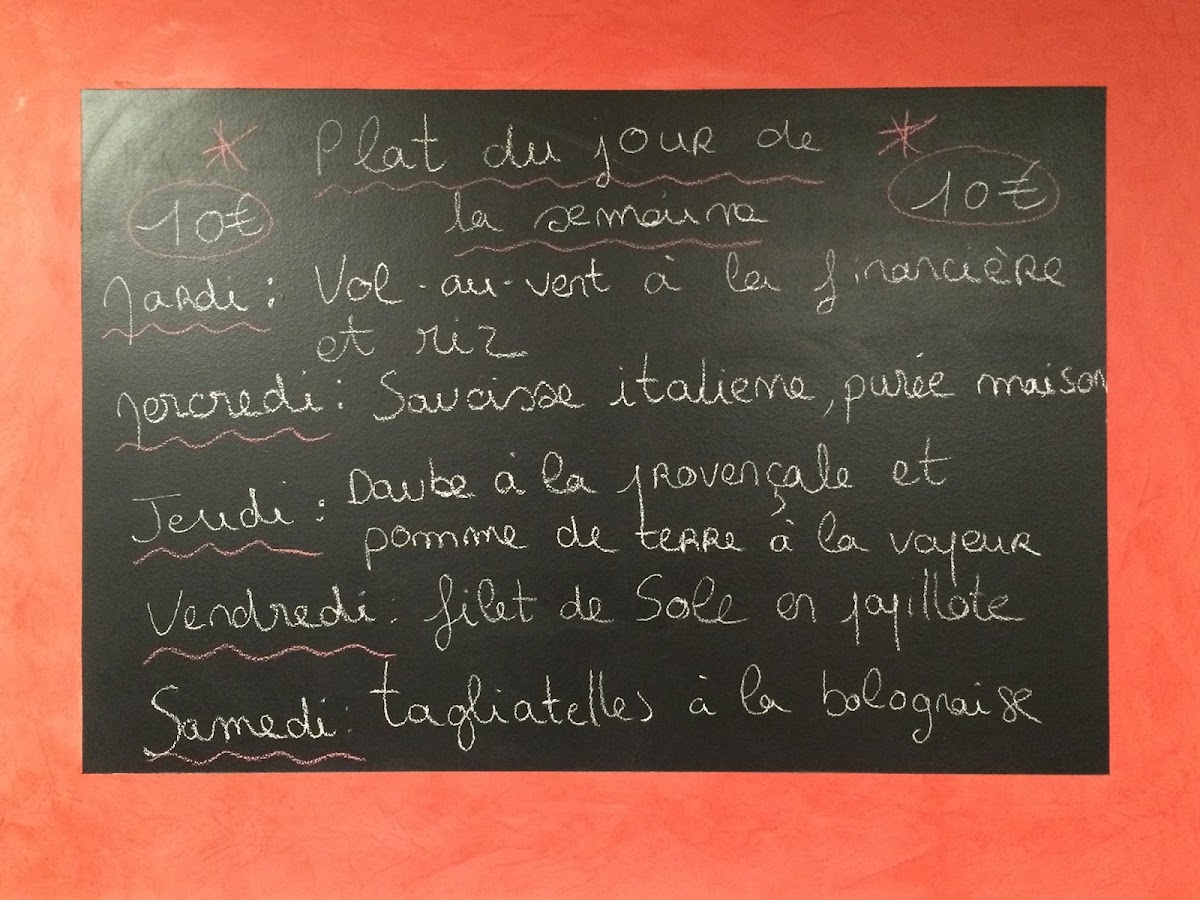 * Plat du jour de *
10€ la semaine 10€
Mardi : Vol-au-vent à la financière
et riz
Mercredi : Saucisse italienne, purée maison
Jeudi : Daube à la provençale et
pomme de terre à la vapeur
Vendredi : filet de Sole en papillote
Samedi : tagliatelles à la bolognaise